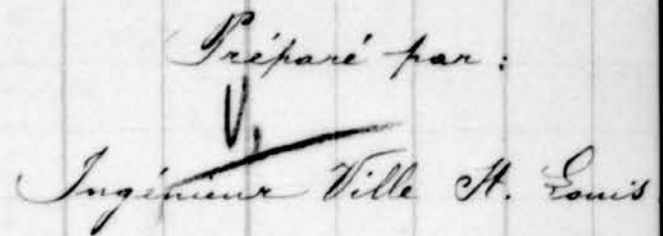 Préparé par:
V.
Ingénieur Ville St. Louis